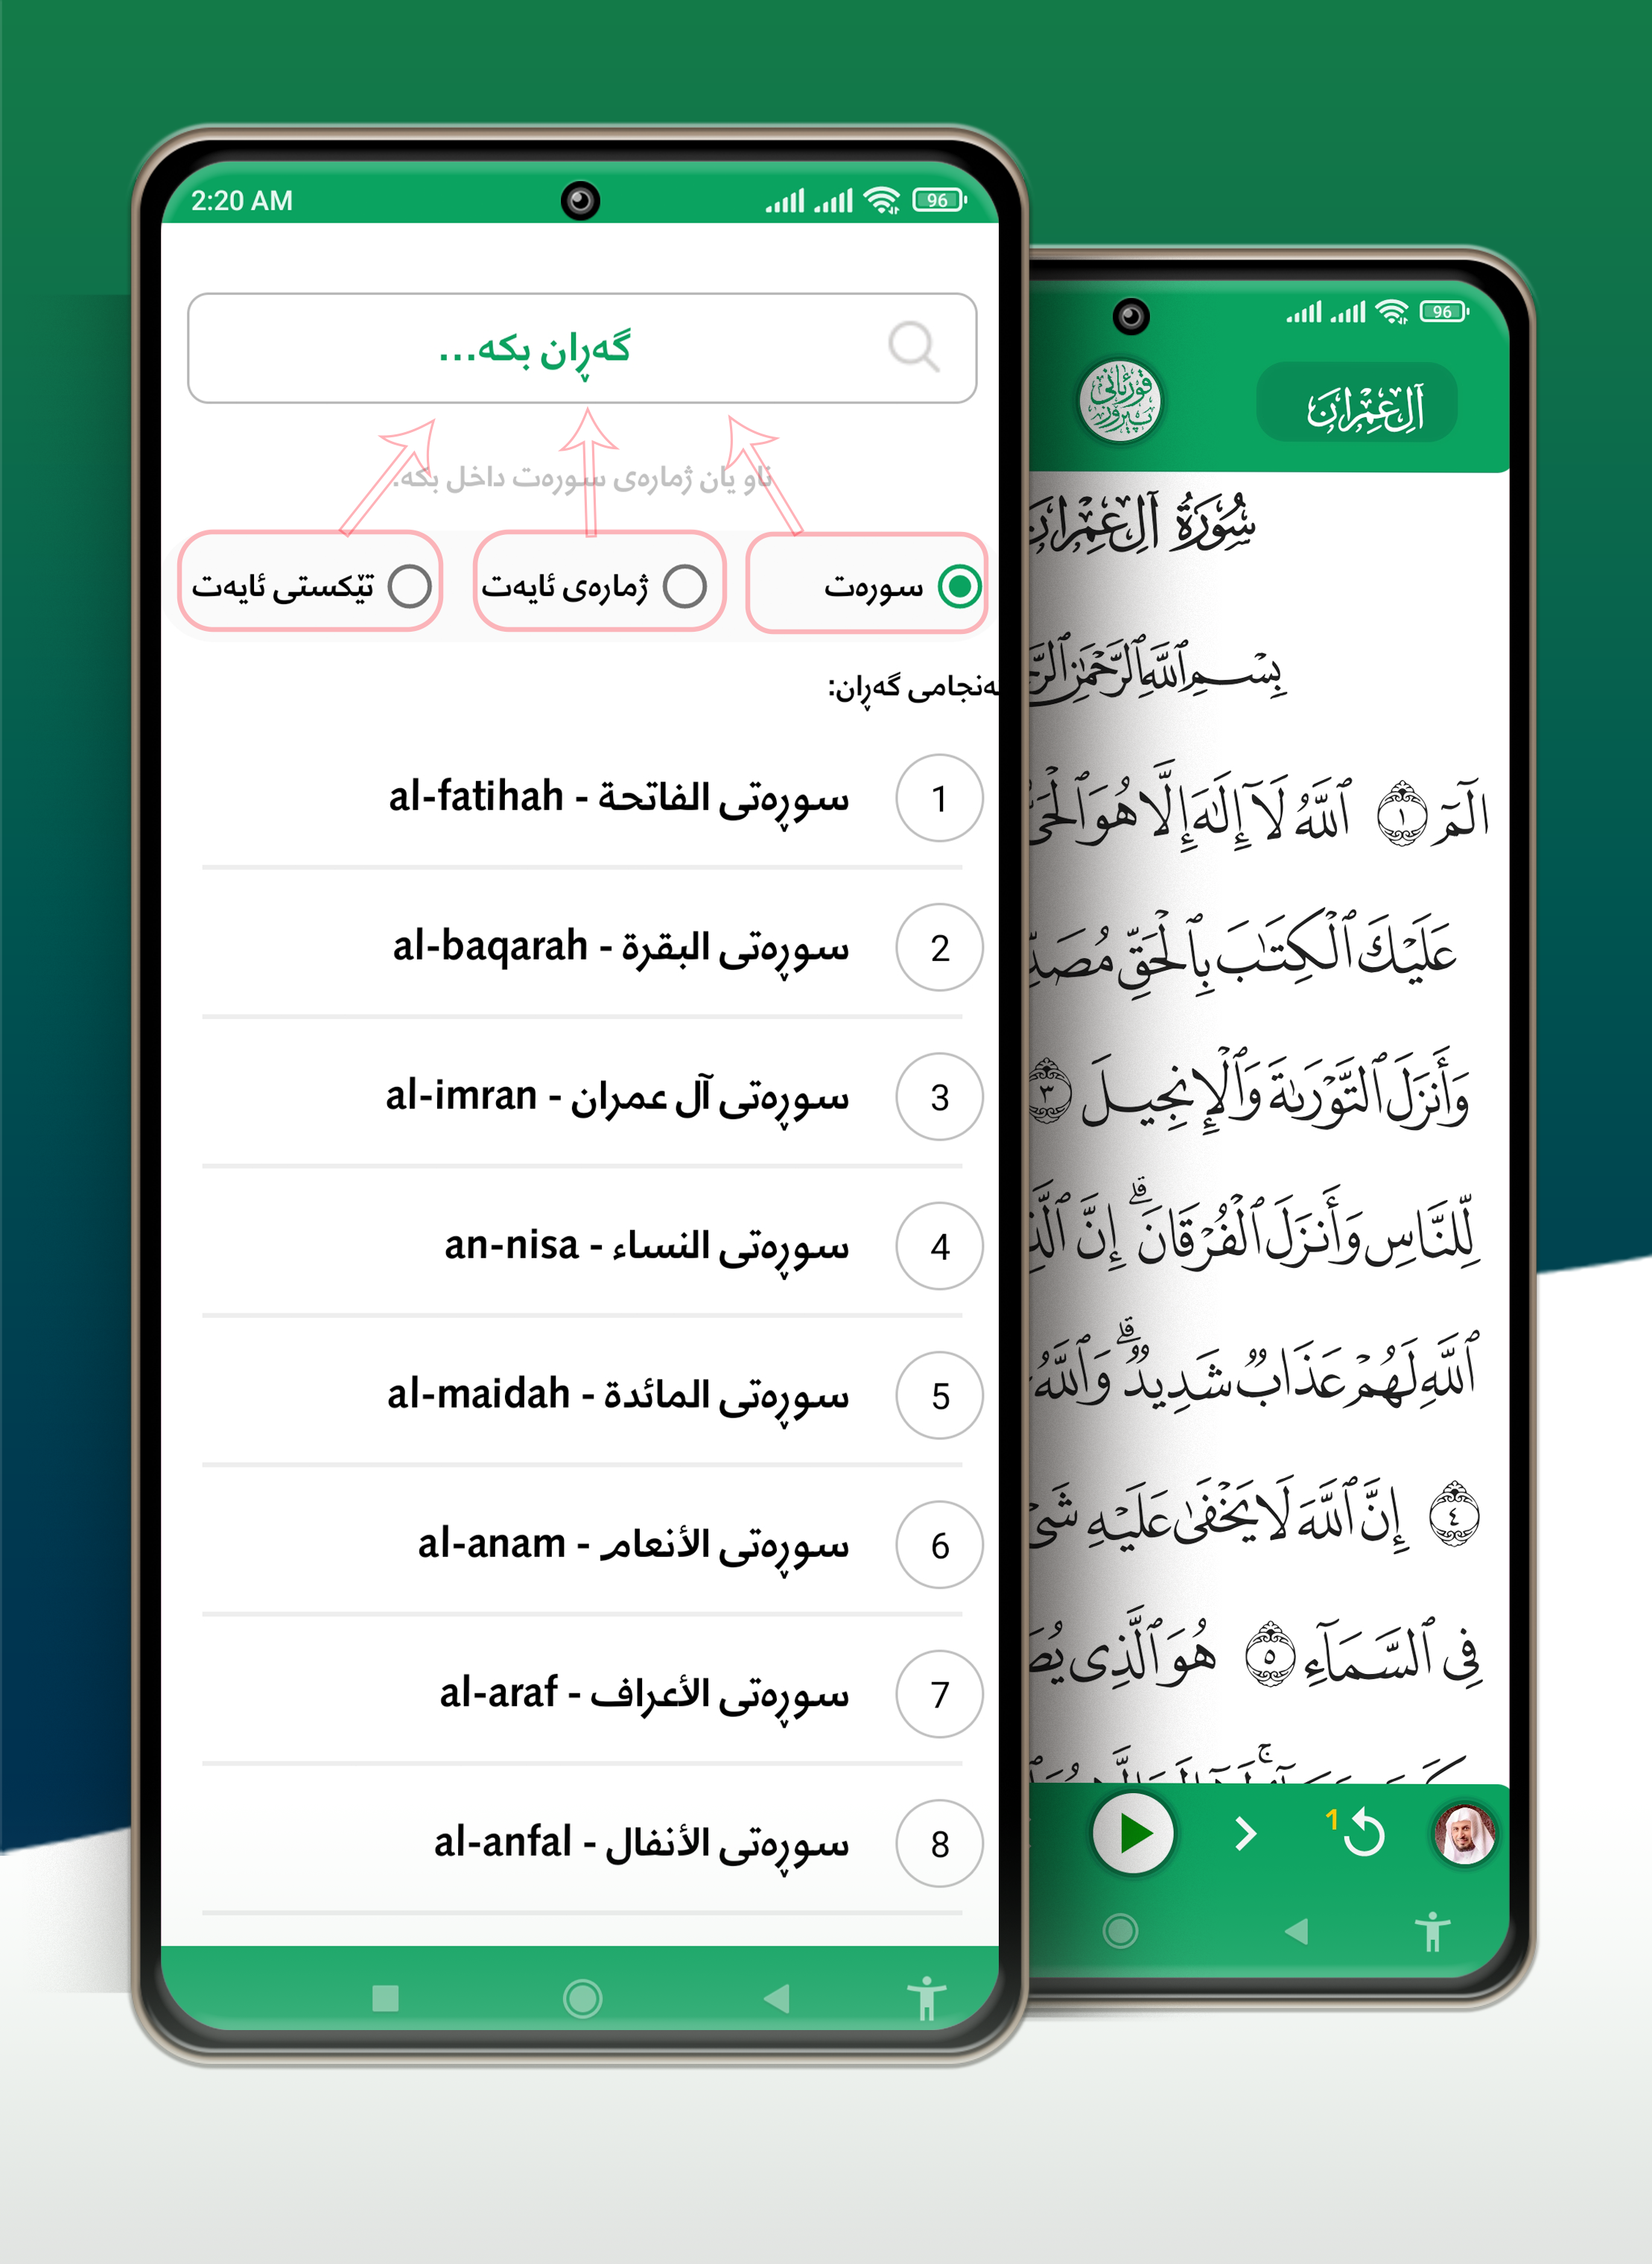 2:20 AM
96
گەڕان بکە...
ناو یان ژمارەی سورەت داخل بکە.
سورەت
ژمارەی ئایەت
تێکستی ئایەت
ەنجامی گەڕان:
1 سوڕەتی الفاتحة - al-fatihah
2 سوڕەتی البقرة - al-baqarah
3 سوڕەتی آل عمران - al-imran
4 سوڕەتی النساء - an-nisa
5 سوڕەتی المائدة - al-maidah
6 سوڕەتی الأنعام - al-anam
7 سوڕەتی الأعراف - al-araf
8 سوڕەتی الأنفال - al-anfal
96
آلِ عِمْرَان
قورئانی پیرۆز
سُورَةُ آلِ عِمْرَان
بِسْمِ ٱللَّهِ ٱلرَّحْمَٰنِ
الٓمٓ ١ ٱللَّهُ لَآ إِلَٰهَ إِلَّا هُوَ ٱلْحَىُّ
عَلَيْكَ ٱلْكِتَٰبَ بِٱلْحَقِّ
وَأَنزَلَ ٱلتَّوْرَىٰةَ وَٱلْإِنجِيلَ ٣
لِّلنَّاسِ وَأَنزَلَ ٱلْفُرْقَانَ ۗ إِنَّ
ٱللَّهِ لَهُمْ عَذَابٌ شَدِيدٌ ۗ وَٱللَّهُ
٤ إِنَّ ٱللَّهَ لَا يَخْفَىٰ عَلَيْهِ
فِى ٱلسَّمَآءِ ٥ هُوَ ٱلَّذِى
1